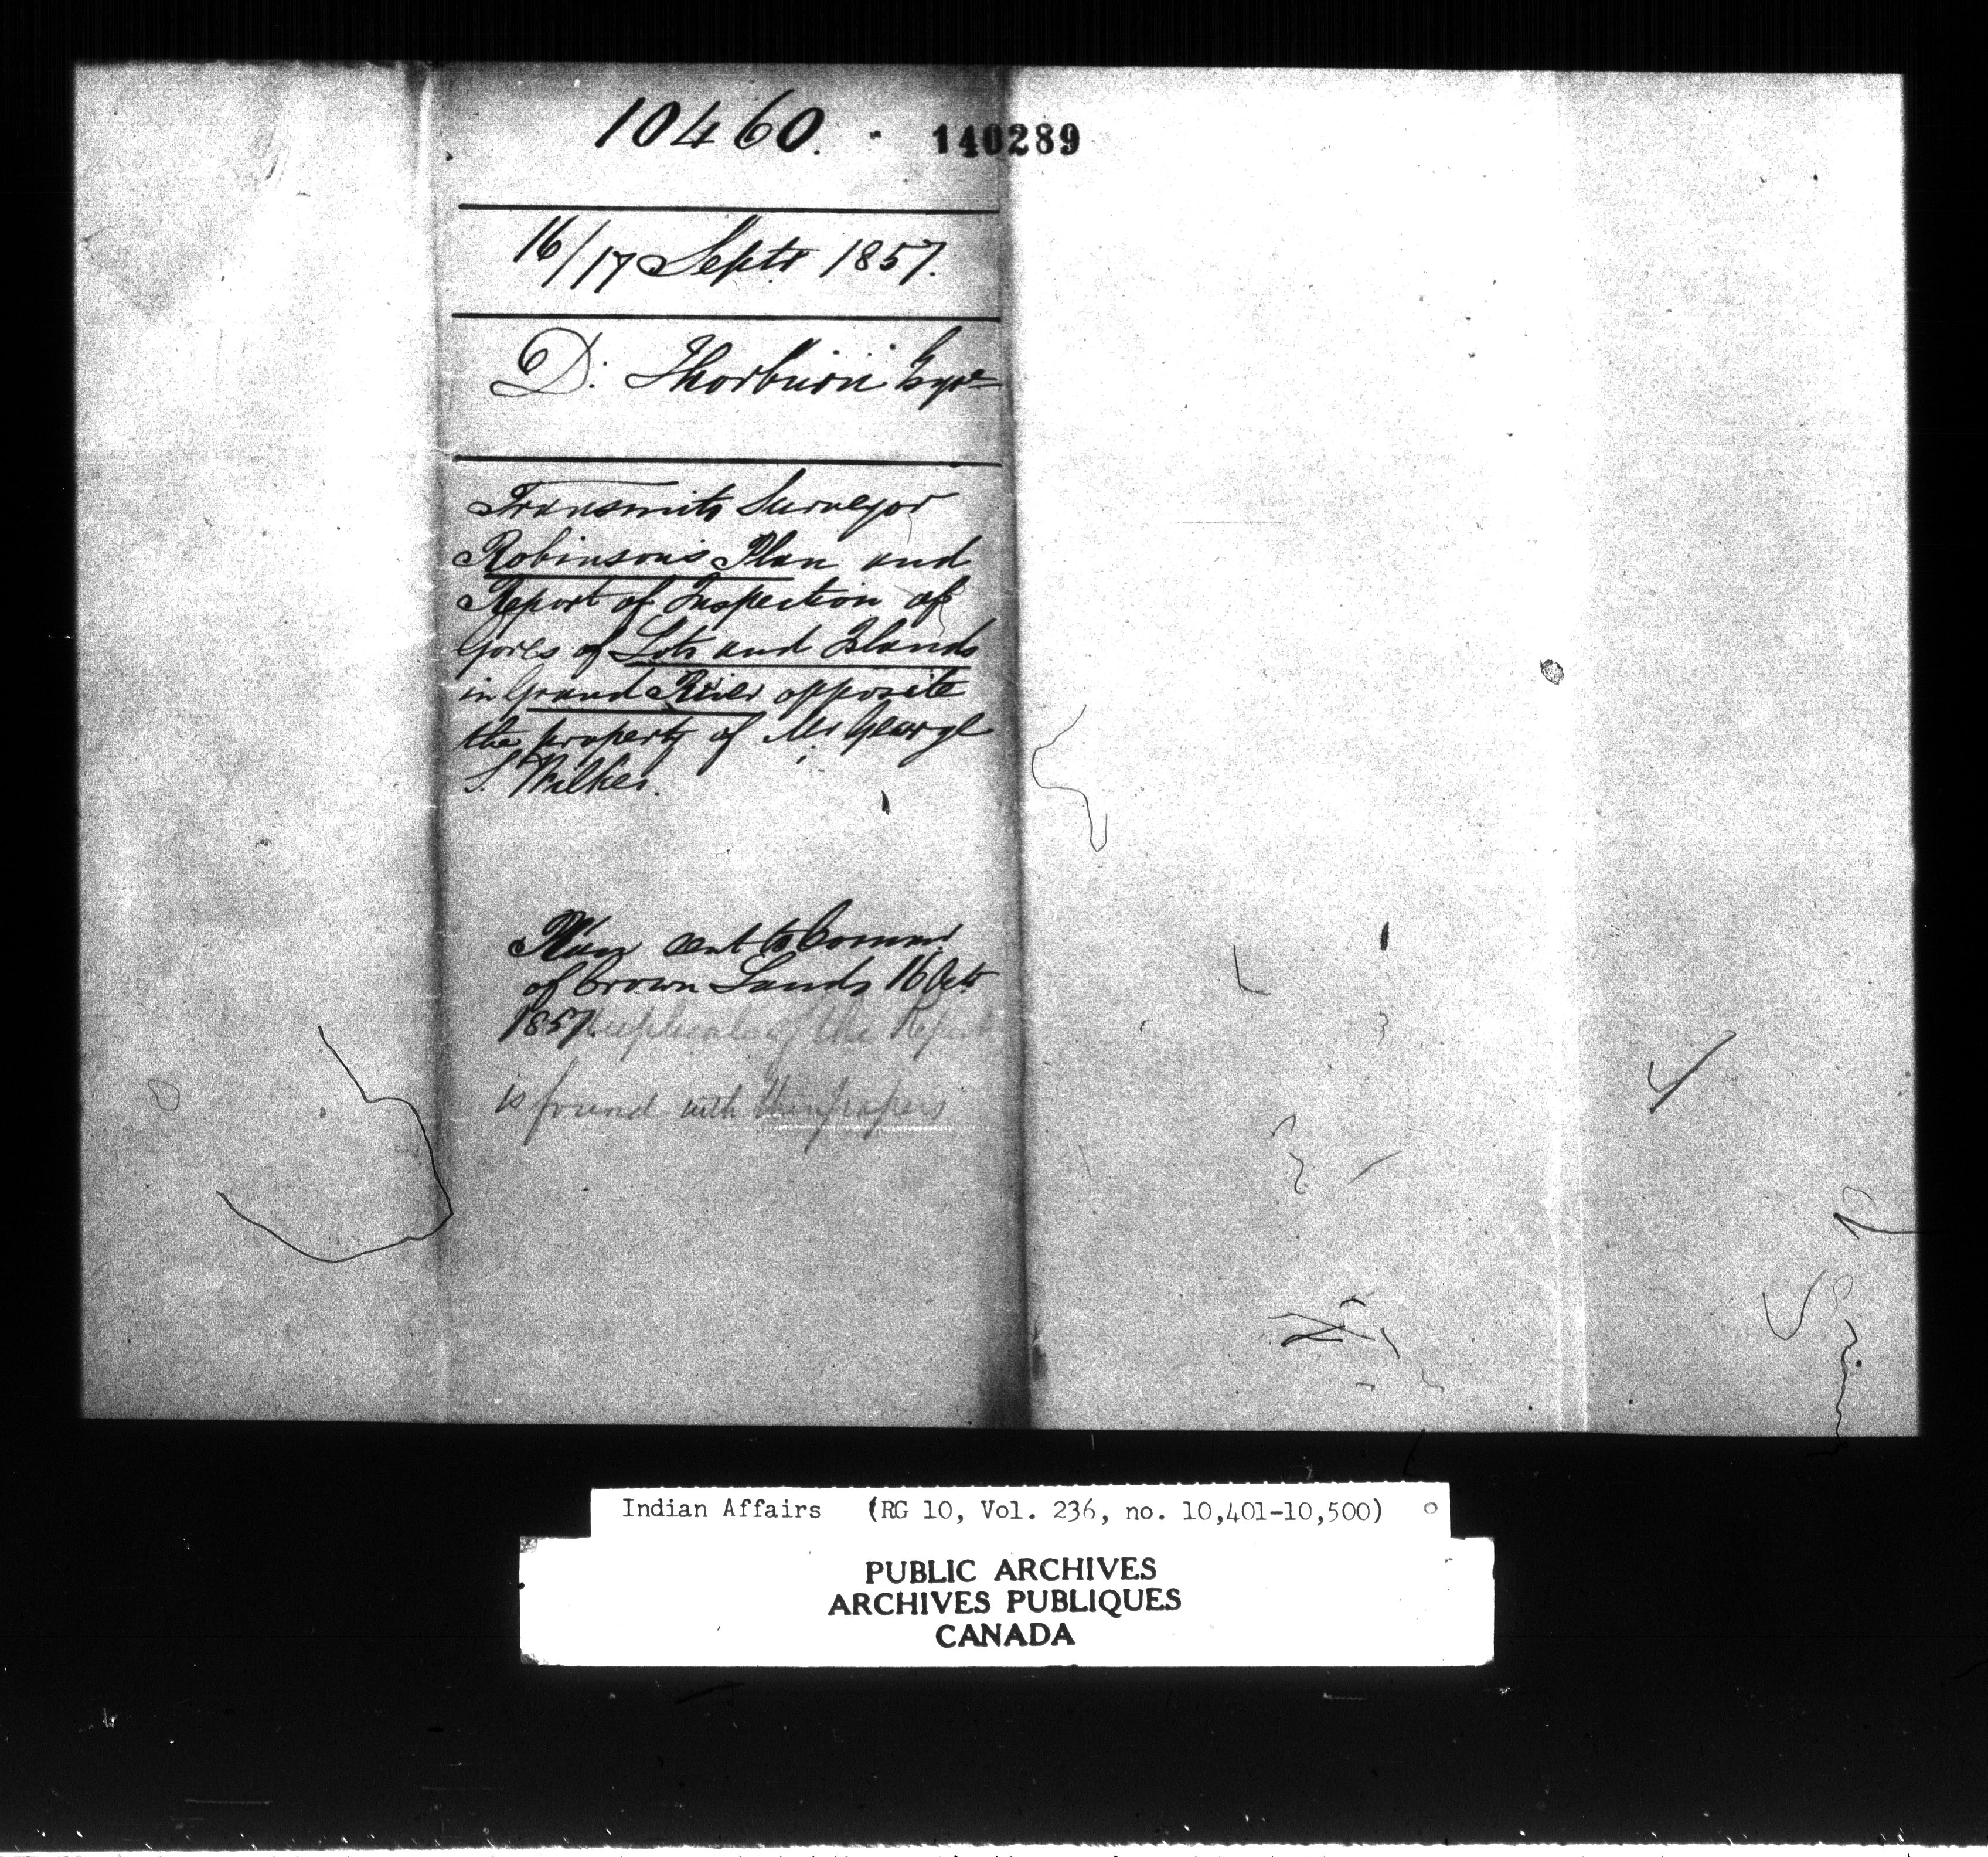 10460.
140289
16/17 Septr 1857.
D. Thorburn Esqre
Transmits Surveyor
Robinson's Plan and
Report of Inspection of
Gores of Lots and Islands
in Grand River opposite
the property of Mr George
S. Wilkes.
Plan sent to Commr
of Crown Lands 16 Octr
1857. Duplicate of the Report
is found with papers
Indian Affairs (RG 10, Vol. 236, no. 10,401-10,500)
PUBLIC ARCHIVES
ARCHIVES PUBLIQUES
CANADA